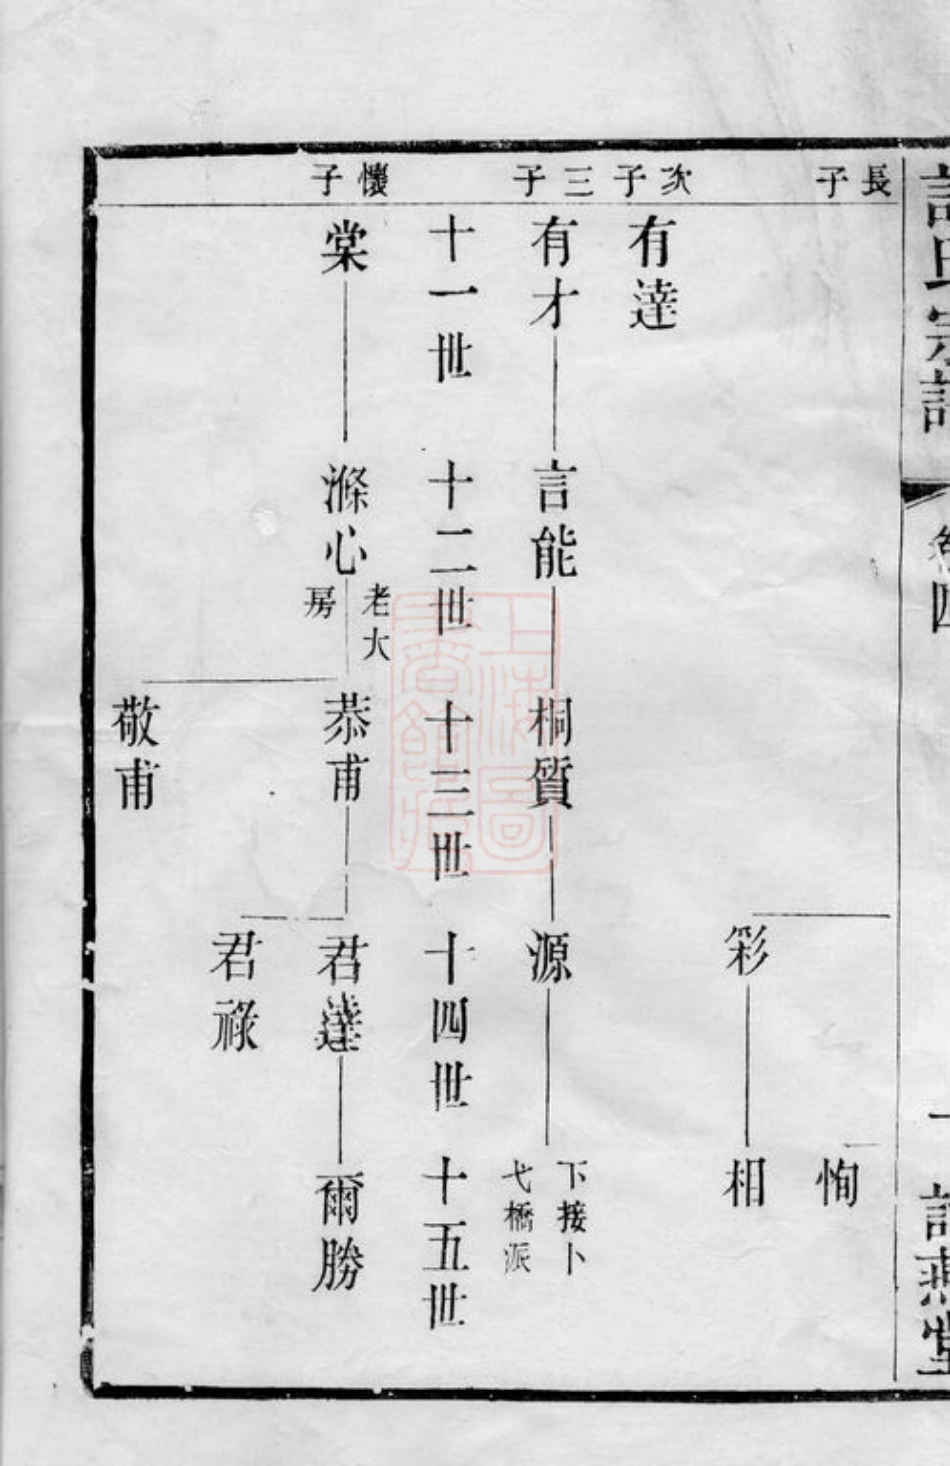 氏宗譜
卷四
十
燕堂
長子
恂
彩
相
次子
有達
三子
有才
言能
桐質
源
下接卜
弋橋派
十一世
十二世
十三世
十四世
十五世
懷子
棠
滌心
老大
房
恭甫
君達
爾勝
君祿
敬甫
上海圖
書館藏